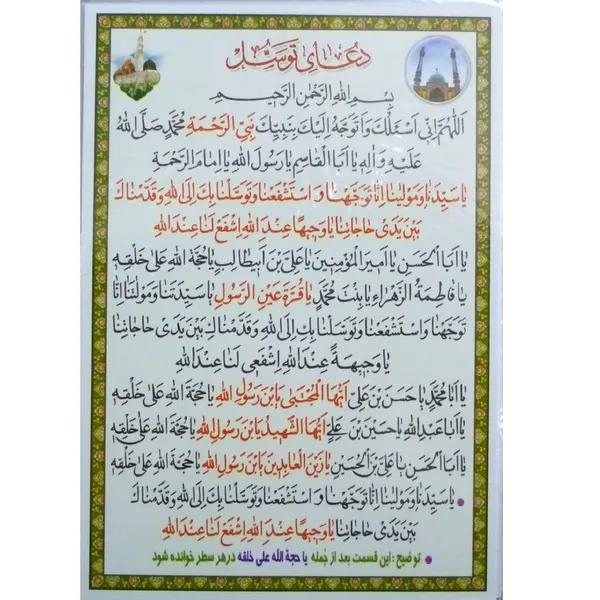 دعای توسّل
بِسْمِ اللهِ الرَّحْمٰنِ الرَّحیمِ
اَللّٰهُمَّ اِنّی اَسْئَلُكَ وَاَتَوَجَّهُ اِلَیْكَ بِنَبِیِّكَ نَبِیِّ الرَّحْمَةِ مُحَمَّدٍ صَلَّى اللهُ
عَلَیْهِ وَآلِهِ یا اَبَا الْقاسِمِ یا رَسُولَ اللهِ یا اِمامَ الرَّحْمَةِ
یا سَیِّدَنا وَمَوْلینا اِنّا تَوَجَّهْنا وَاسْتَشْفَعْنا وَتَوَسَّلْنا بِكَ اِلَى اللهِ وَقَدَّمْناكَ
بَیْنَ یَدَیْ حاجاتِنا یا وَجیهاً عِنْدَ اللهِ اِشْفَعْ لَنا عِنْدَ اللهِ
یا اَبَا الْحَسَنِ یا اَمیرَ الْمُؤْمِنینَ یا عَلِیَّ بْنَ اَبیطالِبٍ یا حُجَّةَ اللهِ عَلیٰ خَلْقِهِ
یا فاطِمَةُ الزَّهْراءِ یا بِنْتَ مُحَمَّدٍ یا قُرَّةَ عَیْنِ الرَّسُولِ یا سَیِّدَتَنا وَمَوْلَتَنا اِنّا
تَوَجَّهْنا وَاسْتَشْفَعْنا وَتَوَسَّلْنا بِكِ اِلَى اللهِ وَقَدَّمْناكِ بَیْنَ یَدَیْ حاجاتِنا
یا وَجیهَةً عِنْدَ اللهِ اِشْفَعی لَنا عِنْدَ اللهِ
یا اَبا مُحَمَّدٍ یا حَسَنَ بْنَ عَلِیٍّ اَیُّهَا الْمُجْتَبیٰ یَابْنَ رَسُولِ اللهِ یا حُجَّةَ اللهِ عَلیٰ خَلْقِهِ
یا اَبا عَبْدِ اللهِ یا حُسَیْنَ بْنَ عَلِیٍّ اَیُّهَا الشَّهیدُ یَابْنَ رَسُولِ اللهِ یا حُجَّةَ اللهِ عَلیٰ خَلْقِهِ
یا اَبَا الْحَسَنِ یا عَلِیَّ بْنَ الْحُسَیْنِ یا زَیْنَ الْعابِدینَ یَابْنَ رَسُولِ اللهِ یا حُجَّةَ اللهِ عَلیٰ خَلْقِهِ
• یا سَیِّدَنا وَمَوْلینا اِنّا تَوَجَّهْنا وَاسْتَشْفَعْنا وَتَوَسَّلْنا بِكَ اِلَى اللهِ وَقَدَّمْناكَ
بَیْنَ یَدَیْ حاجاتِنا یا وَجیهاً عِنْدَ اللهِ اِشْفَعْ لَنا عِنْدَ اللهِ
• توضیح : این قسمت بعد از جمله یا حجة الله علی خلقه در هر سطر خوانده شود